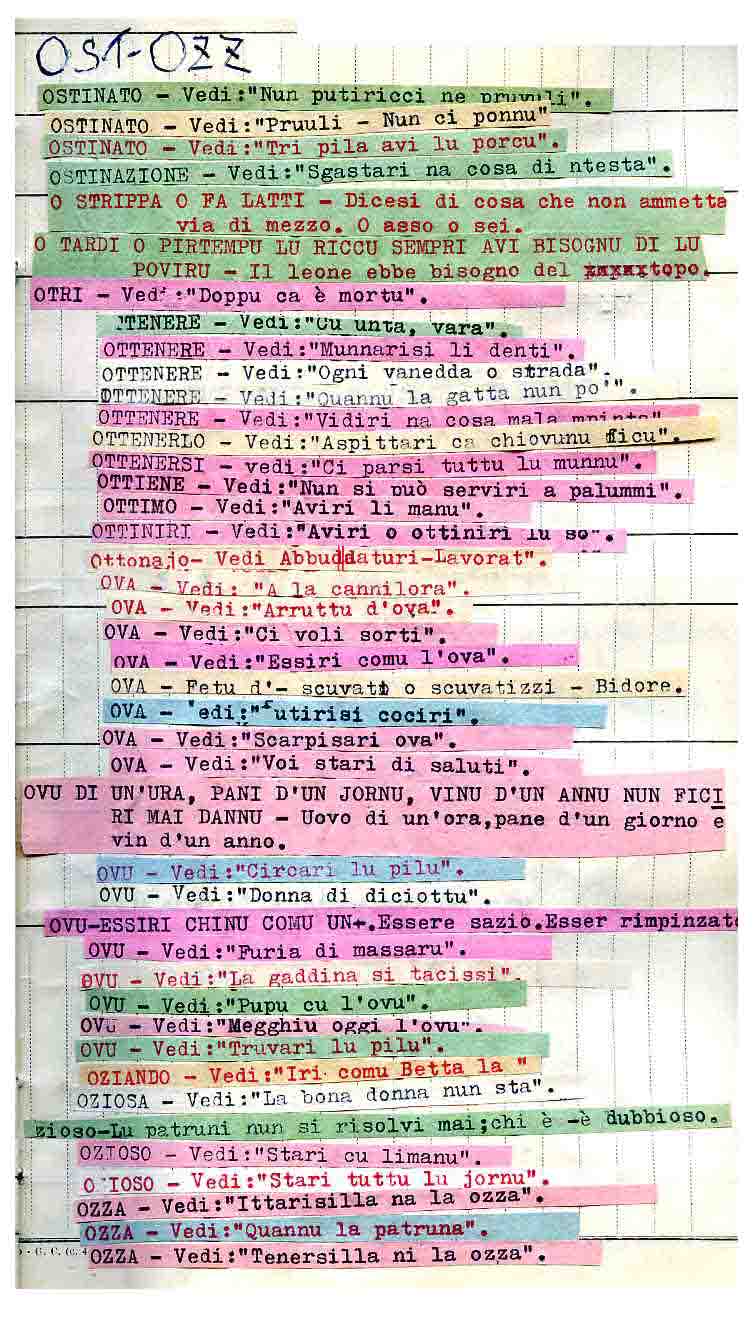 OST-OZZ
OSTINATO - Vedi:"Nun putiricci ne pruvuli".
OSTINATO - Vedi:"Pruuli - Nun ci ponnu"
OSTINATO - Vedi:"Tri pila avi lu porcu".
OSTINAZIONE - Vedi:"Sgastari na cosa di ntesta".
O STRIPPA O FA LATTI - Dicesi di cosa che non ammetta
via di mezzo. O asso o sei.
O TARDI O PIRTEMPU LU RICCU SEMPRI AVI BISOGNU DI LU
POVIRU - Il leone ebbe bisogno del topo.
OTRI - Vedi:"Doppu ca è mortu".
TENERE - Vedi:"Cu unta, vara".
OTTENERE - Vedi:"Munnarisi li denti".
OTTENERE - Vedi:"Ogni vanedda o strada".
OTTENERE - Vedi:"Quannu la gatta nun po'".
OTTENERE - Vedi:"Vidiri na cosa mala
OTTENERLO - Vedi:"Aspittari ca chiovunu ficu".
OTTENERSI - vedi:"Ci parsi tuttu lu munnu".
OTTIENE - Vedi:"Nun si può serviri a palummi".
OTTIMO - Vedi:"Aviri li manu".
OTTINIRI - Vedi:"Aviri o ottiniri lu so".
Ottonajo- Vedi Abbuddaturi-Lavorat".
OVA - Vedi: "A la cannilora".
OVA - Vedi:"Arruttu d'ova".
OVA - Vedi:"Ci voli sorti".
OVA - Vedi:"Essiri comu l'ova".
OVA - Fetu d'- scuvati o scuvatizzi - Bidore.
OVA - edi:" utirisi cociri".
OVA - Vedi:"Scarpisari ova".
OVA - Vedi:"Voi stari di saluti".
OVU DI UN'URA, PANI D'UN JORNU, VINU D'UN ANNU NUN FICI
RI MAI DANNU - Uovo di un'ora,pane d'un giorno e
vin d'un anno.
OVU - Vedi:"Circari lu pilu".
OVU - Vedi:"Donna di diciottu".
OVU-ESSIRI CHINU COMU UN+.Essere sazio.Esser rimpinzato
OVU - Vedi:"Furia di massaru".
OVU - Vedi:"La gaddina si tacissi".
OVU - Vedi:"Pupu cu l'ovu".
OVU - Vedi:"Megghiu oggi l'ovu".
OVU - Vedi:"Truvari lu pilu".
OZIANDO - Vedi:"Iri comu Betta la "
OZIOSA - Vedi:"La bona donna nun sta".
zioso-Lu patruni nun si risolvi mai;chi è -è dubbioso.
OZIOSO - Vedi:"Stari cu limanu".
O IOSO - Vedi:"Stari tuttu lu jornu".
OZZA - Vedi:"Ittarisilla na la ozza".
OZZA - Vedi:"Quannu la patruna".
OZZA - Vedi:"Tenersilla ni la ozza".